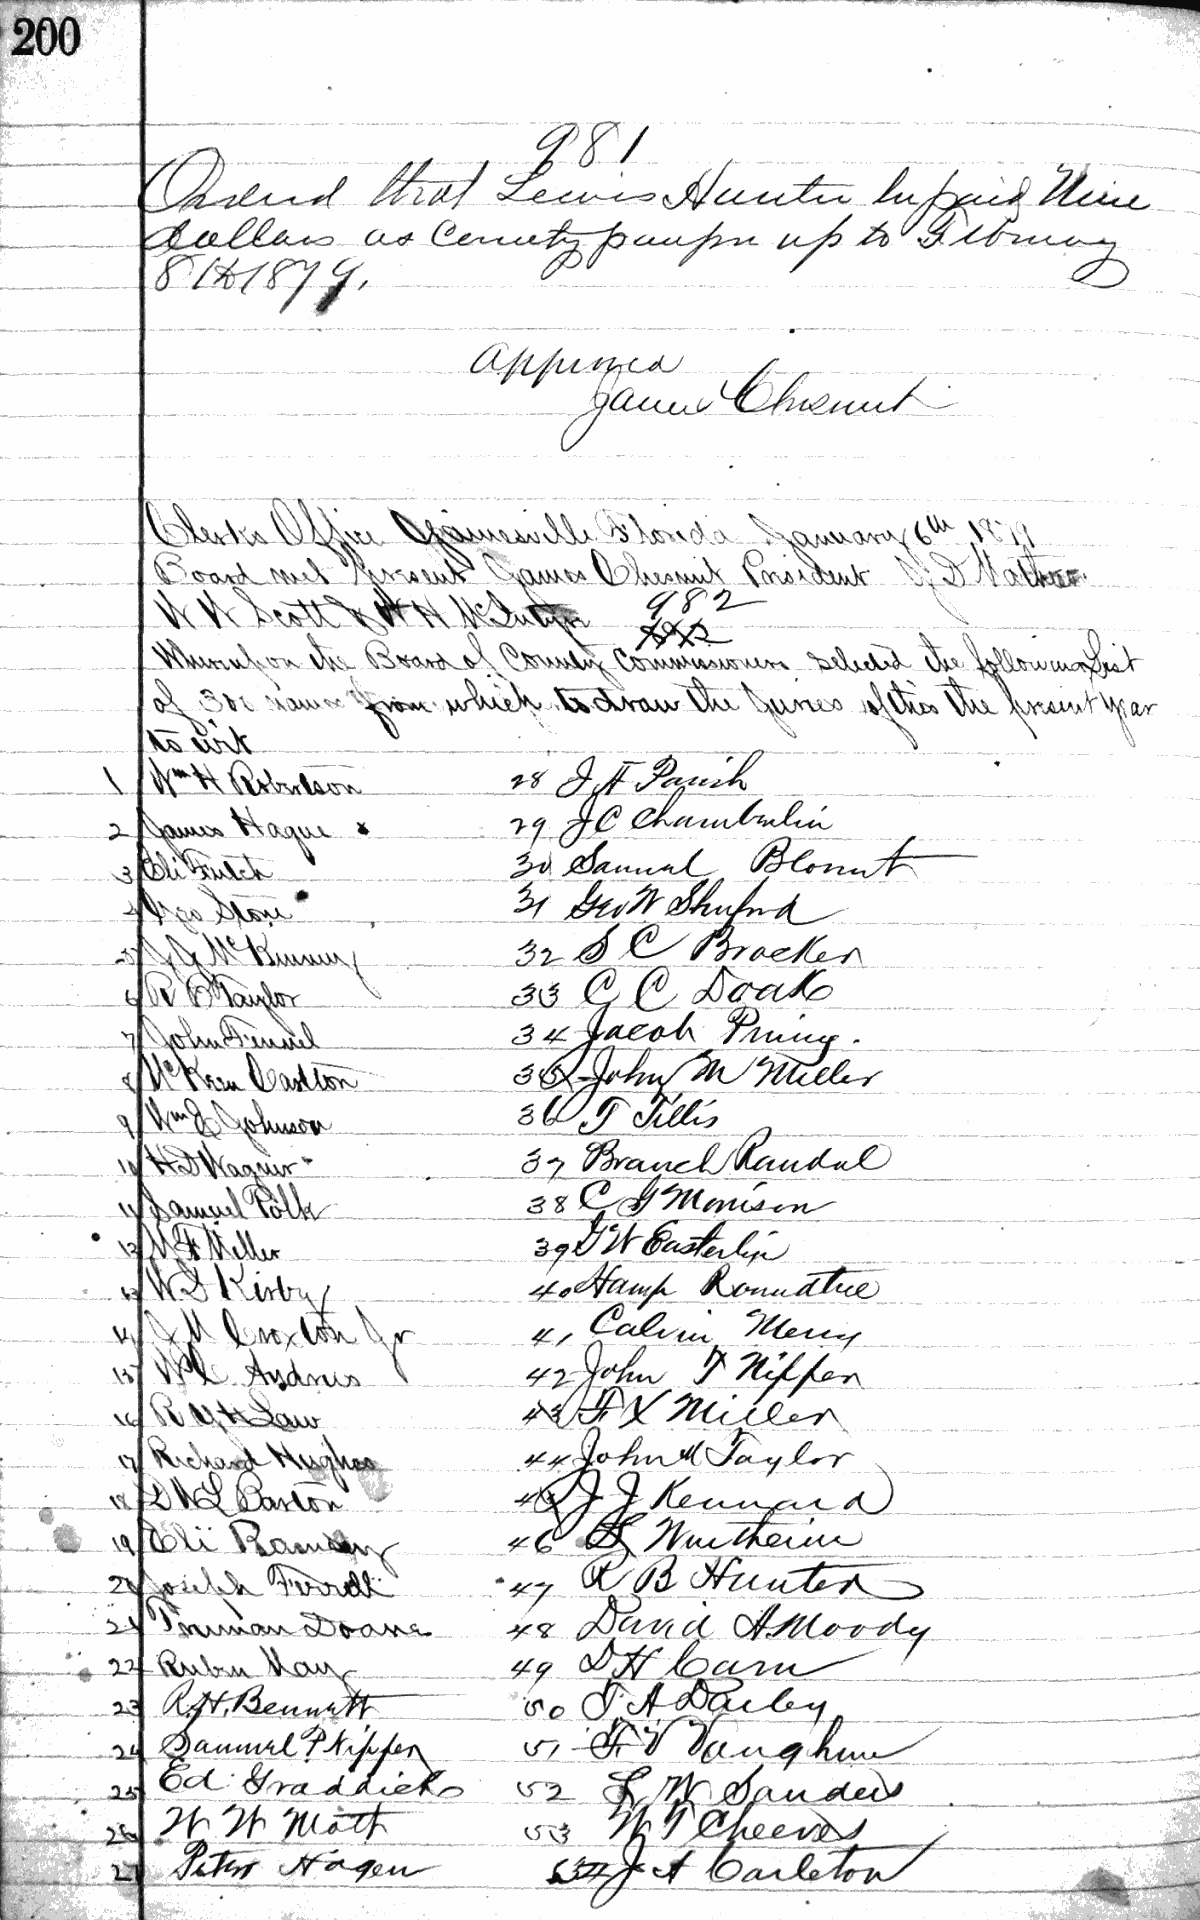 200
981
Ordered that Lewis Hunter be paid Nine
dollars as County pauper up to February
8th 1879.
Approved
James Chesnut
Clerks Office Gainesville Florida January 6th 1879
Board met Present James Chesnut President
W W Scott & W H McIntyre 982
Whereupon the Board of County Commissioners selected the following List
of 300 names from which to draw the Juries of this the present year
to wit
1 Wm H Robertson
2 James Hague
3 Eli Futch
4 Geo Stone
5 J J McKinney
6 R B Taylor
7 John Fennel
8 Carlton
9 Wm E Johnson
10 H D Wagner
11 Samuel Polk
12 M F Miller
13 W S Kirby
14 J M Croxton Jr
15 W L Andrews
16 R Y H Law
17 Richard Hughes
18 D W L Barton
19 Eli Ramsey
20 Joseph Ferrell
21 Truman Doane
22 Ruben May
23 R. H. Bennett
24 Samuel P Nippen
25 Ed Graddick
26 W W Mott
27 Peter Hagen
28 J H Parish
29 J C Chamberlin
30 Samuel Blount
31 Geo W Shuford
32 S C Brocker
33 C C Doak
34 Jacob
35 John M Miller
36 T Tillis
37 Branch Randal
38 C G Morrison
39 G W Easterlin
40 Hamp Roundtree
41 Calvin Merry
42 John T Nippen
43 F X Miller
44 John M Taylor
45 J J Kennard
46 Wurtheim
47 R B Hunter
48 David A Moody
49 D H Carn
50 T A Darby
51 F V Vaughn
52 L W Sanders
53 W T Cheeves
54 J A Carleton